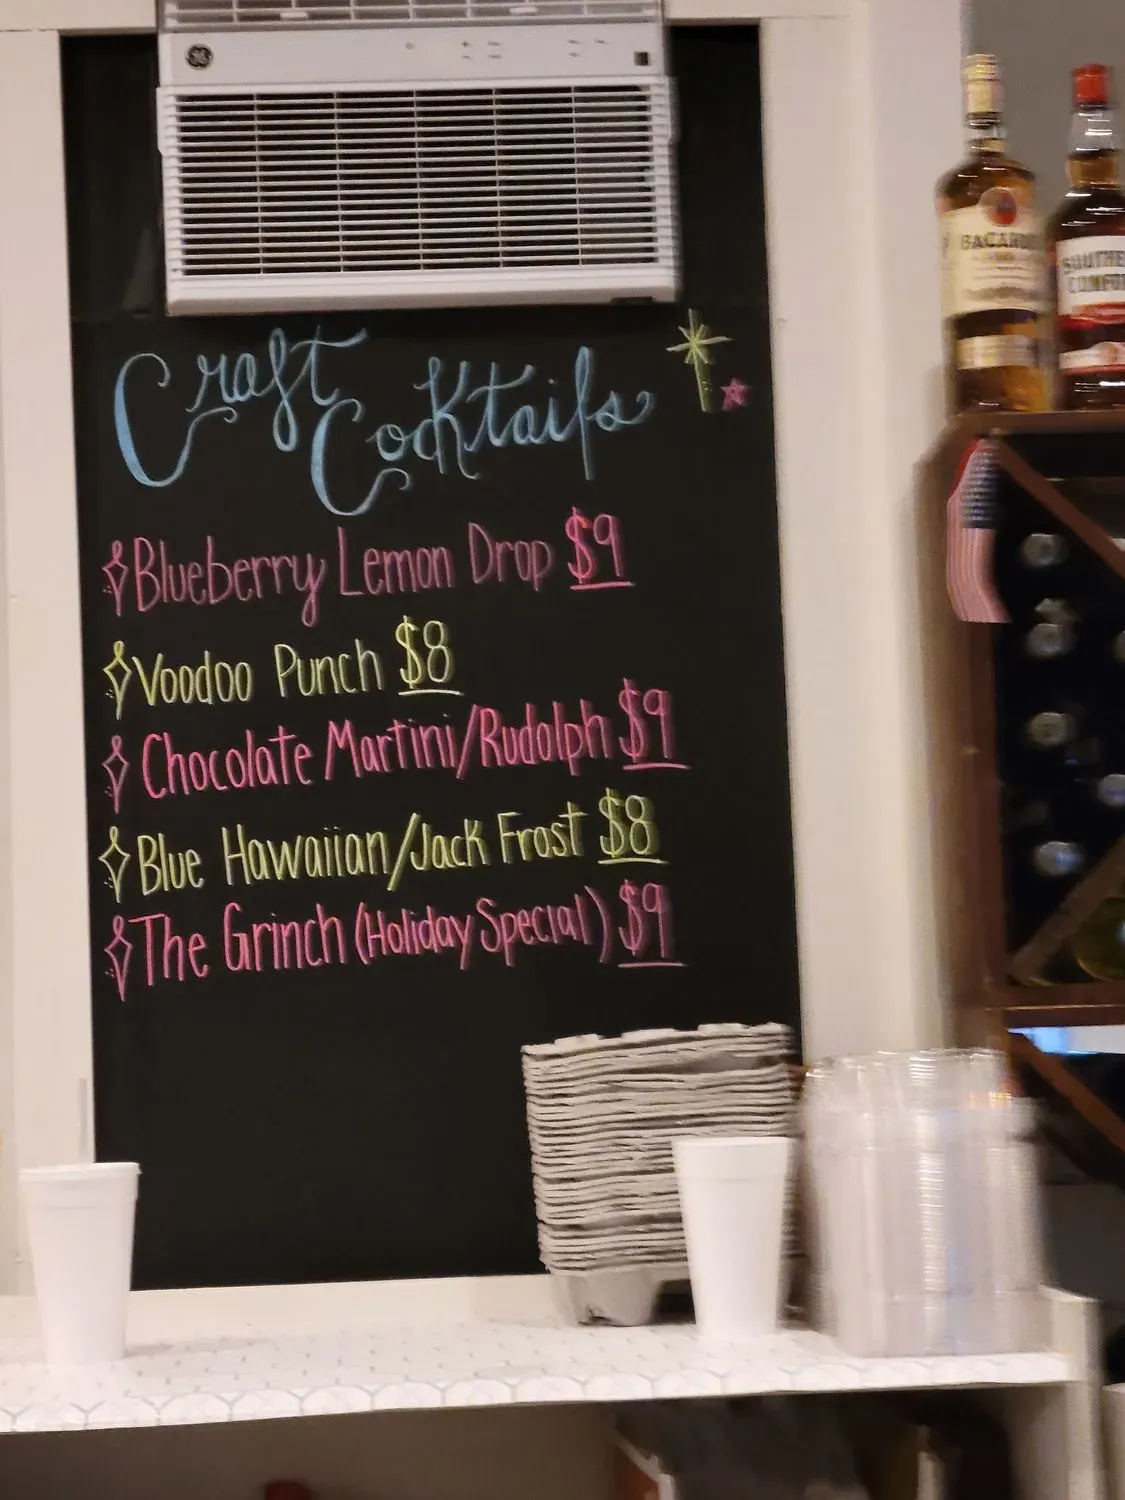 GE
Craft
Cocktails
Blueberry Lemon Drop $9
Voodoo Punch $8
Chocolate Martini/Rudolph $9
Blue Hawaiian/Jack Frost $8
The Grinch (Holiday Special) $9
BACARDI
SOUTHE
COMFO